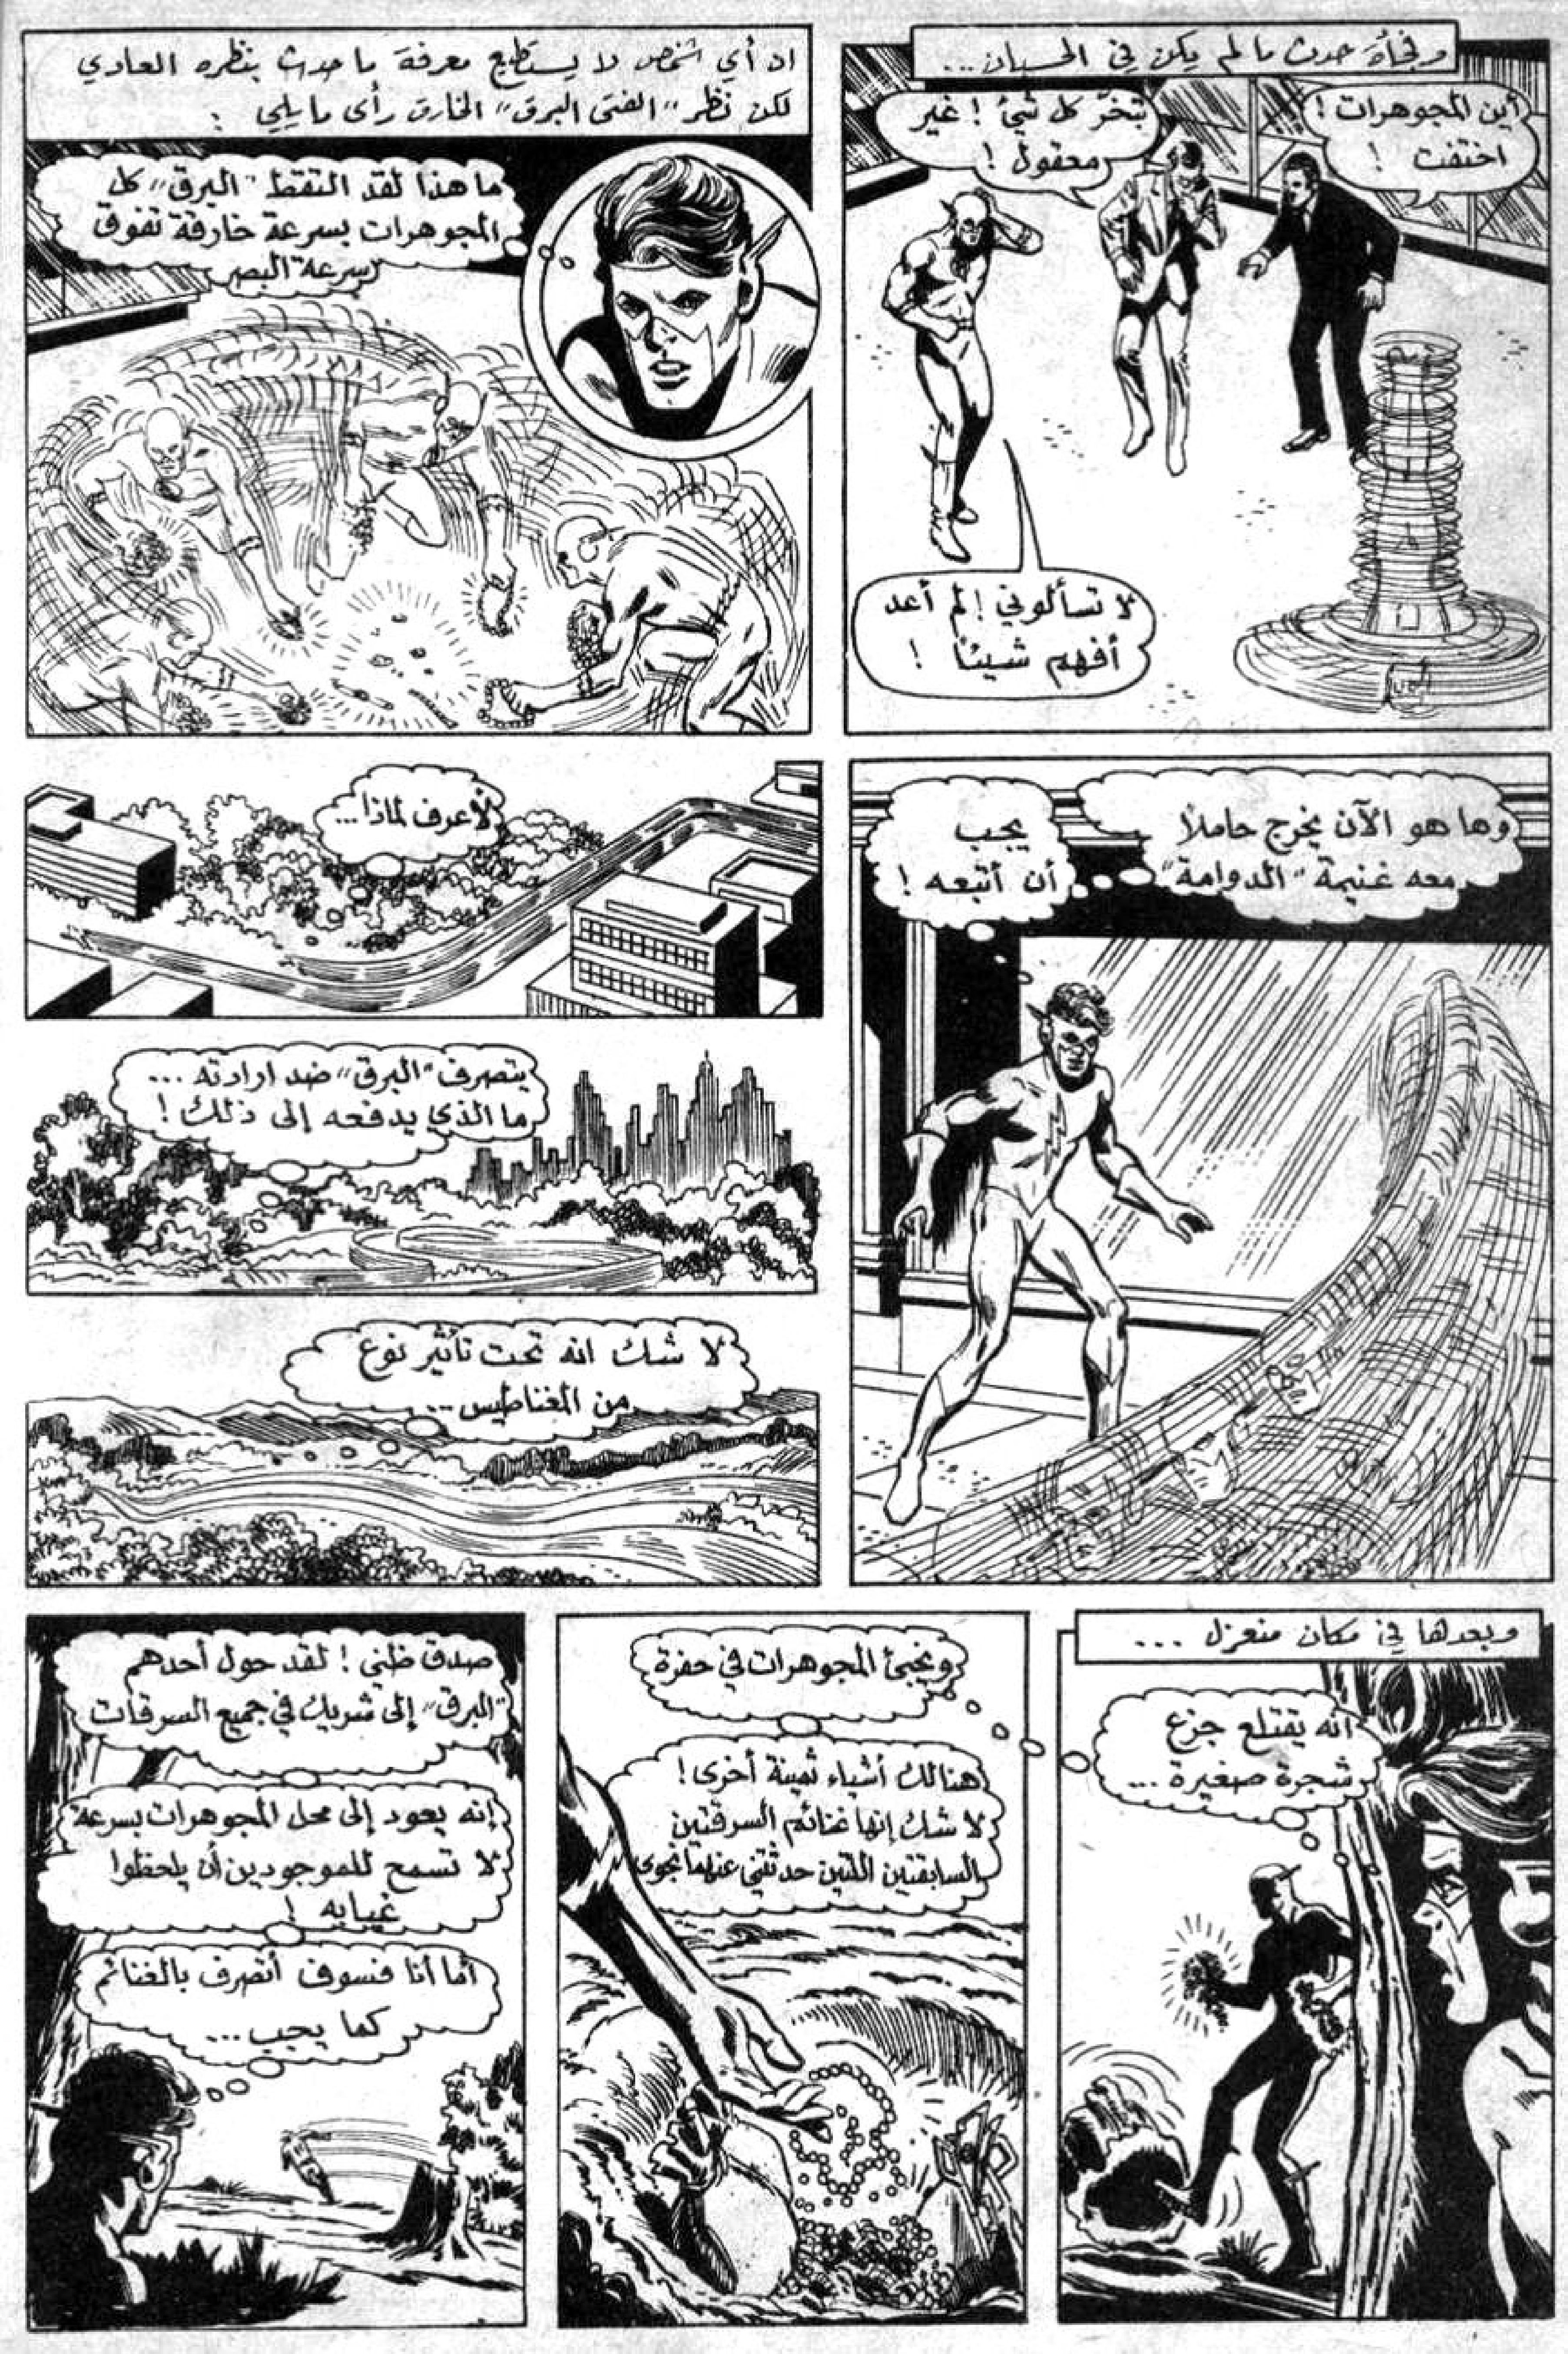 وفجأة حدث ما لم يكن في الحسبان...
أين المجوهرات!
اختفت !
تبخّر كل شيئ! غير
معقول !
لا تسألوني! لم أعد
أفهم شيئا !
ان أي شخص لا يستطيع معرفة ما حدث بنظره العادي
لكن نظر "الفتى البرق" الخارق رأى ما يلي :
ما هذا لقد التقط "البرق" كل
المجوهرات بسرعة خارقة تفوق
سرعة البصر
وها هو الآن يخرج حاملا
معه غنيمة "الدوامة"
يجب
أن أتبعه !
لأعرف لماذا...
يتصرف "البرق" ضد ارادته ...
ما الذي يدفعه إلى ذلك !
لا شك انه تحت تأثير نوع
من المغناطيس...
وبعدها في مكان منعزل ...
انه يقتلع جزع
شجرة صغيرة ...
ويخبئ المجوهرات في حفرة
هنالك أشياء ثمينة أخرى!
لا شك إنها غنائم السرقتين
السابقتين اللتين حدثتني عنهما نجوى
صدق ظني ! لقد حول أحدهم
"البرق" إلى شريك في جميع السرقات
إنه يعود إلى محل المجوهرات بسرعة
لا تسمح للموجودين أن يلحظوا
غيابه !
أما أنا فسوف أتصرف بالغنائم
كما يجب...